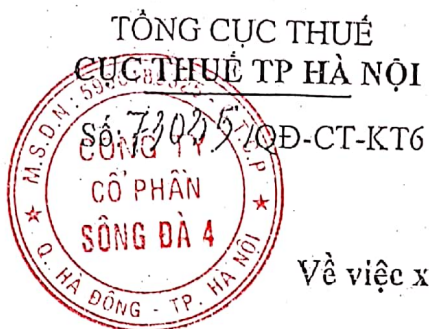 TỔNG CỤC THUẾ
CỤC THUẾ TP HÀ NỘI
Số: 73025/QĐ-CT-KT6
M.S.D.N: 
CÔNG TY
CỔ PHẦN
SÔNG ĐÀ 4
Q. HÀ ĐÔNG - TP. HÀ NỘI
Về việc x